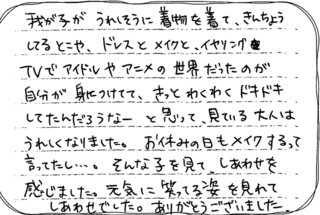 我が子が うれしそうに 着物を着て、きんちょう
してるとこや、ドレスと メイクと、イヤリング
TVで アイドルや アニメの 世界だったのが
自分が 身につけてて、きっと わくわく ドキドキ
してたんだろうなー と 思って、見ている 大人は
うれしくなりました。 お休みの日も メイクするって
言ってたし…。 そんな子を見て、しあわせを
感じました。元気に 笑ってる姿 を見れて
しあわせでした。ありがとうございました